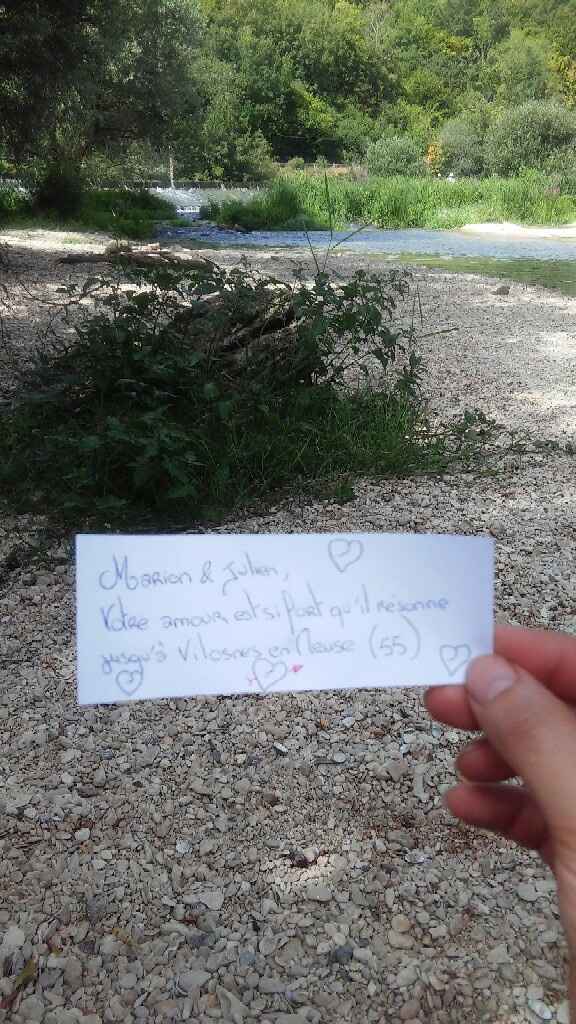 Marion & Julien,
Votre amour est si fort qu'il résonne
jusqu'à Vilosnes en Meuse (55)